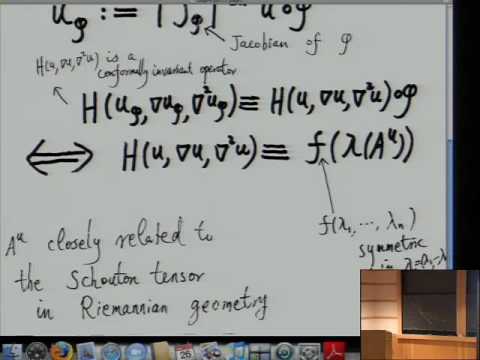 u_φ := |J_φ| u∘φ
Jacobian of φ
H(u,∇u,∇²u) is a
conformally invariant operator
H(u_φ,∇u_φ,∇²u_φ)≡H(u,∇u,∇²u)∘φ
⟺ H(u,∇u,∇²u)≡ f(λ(A^u))
f(λ₁,⋯,λₙ)
symmetric
in λ=(λ₁
A^u closely related to
the Schouton tensor
in Riemannian geometry